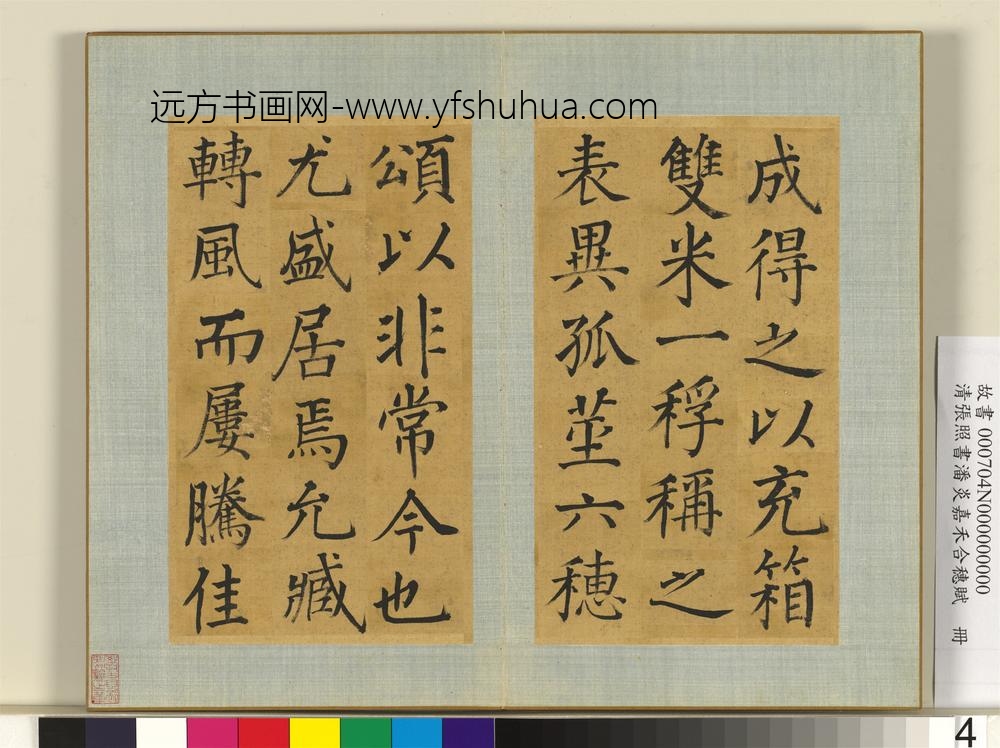 远方书画网-www.yfshuhua.com
成得之以充箱
雙米一稃稱之
表異孤莖六穗
頌以非常今也
尤盛居焉允臧
轉風而屢騰佳
故書 000704N000000000
清張照書潘炎嘉禾合穗賦 冊
4